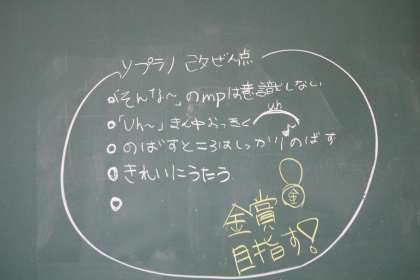 ソプラノ 改ぜん点
「そんな〜」のmpは意識しない
uh
「Uh〜」まん中おっきく
のばすところはしっかりのばす
きれいにうたう
金
金賞
目指す!